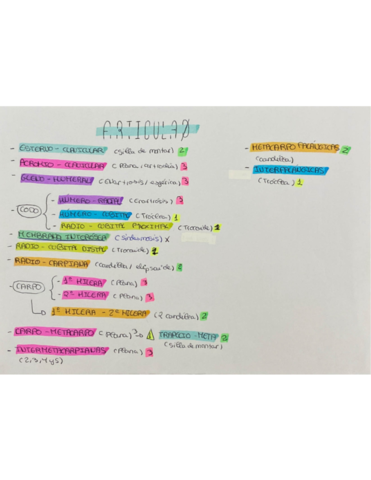 - ESTERNO - CLAVICULAR (silla de montar) 2
- ACROMIO - CLAVICULAR (Plana, artrodia) 3
- GLENO - HUMERAL (Enartrosis / esférica) 3
CODO
- HÚMERO - RADIAL (enartrosis) 3
- HÚMERO - CUBITAL (Tróclea) 1
- RADIO - CUBITAL PROXIMAL (Trocoide) 1
- MEMBRANA INTERÓSEA (sindesmosis) x
- RADIO - CUBITAL DISTAL (Trocoide) 1
- RADIO - CARPIANA (condílea / elipsoide) 2
CARPO
- 1ª HILERA (Plana) 3
- 2ª HILERA (Plana) 3
1ª HILERA - 2ª HILERA (2 condílea) 2
- CARPO - METACARPO (Plana) 3 TRAPECIO - META 2
(silla de montar)
- INTERMETACARPIANAS (Plana) 3
(2,3,4 y 5)
- METACARPO FALÁNGICAS 2
(condílea)
- INTERFALÁNGICAS
(Tróclea) 1